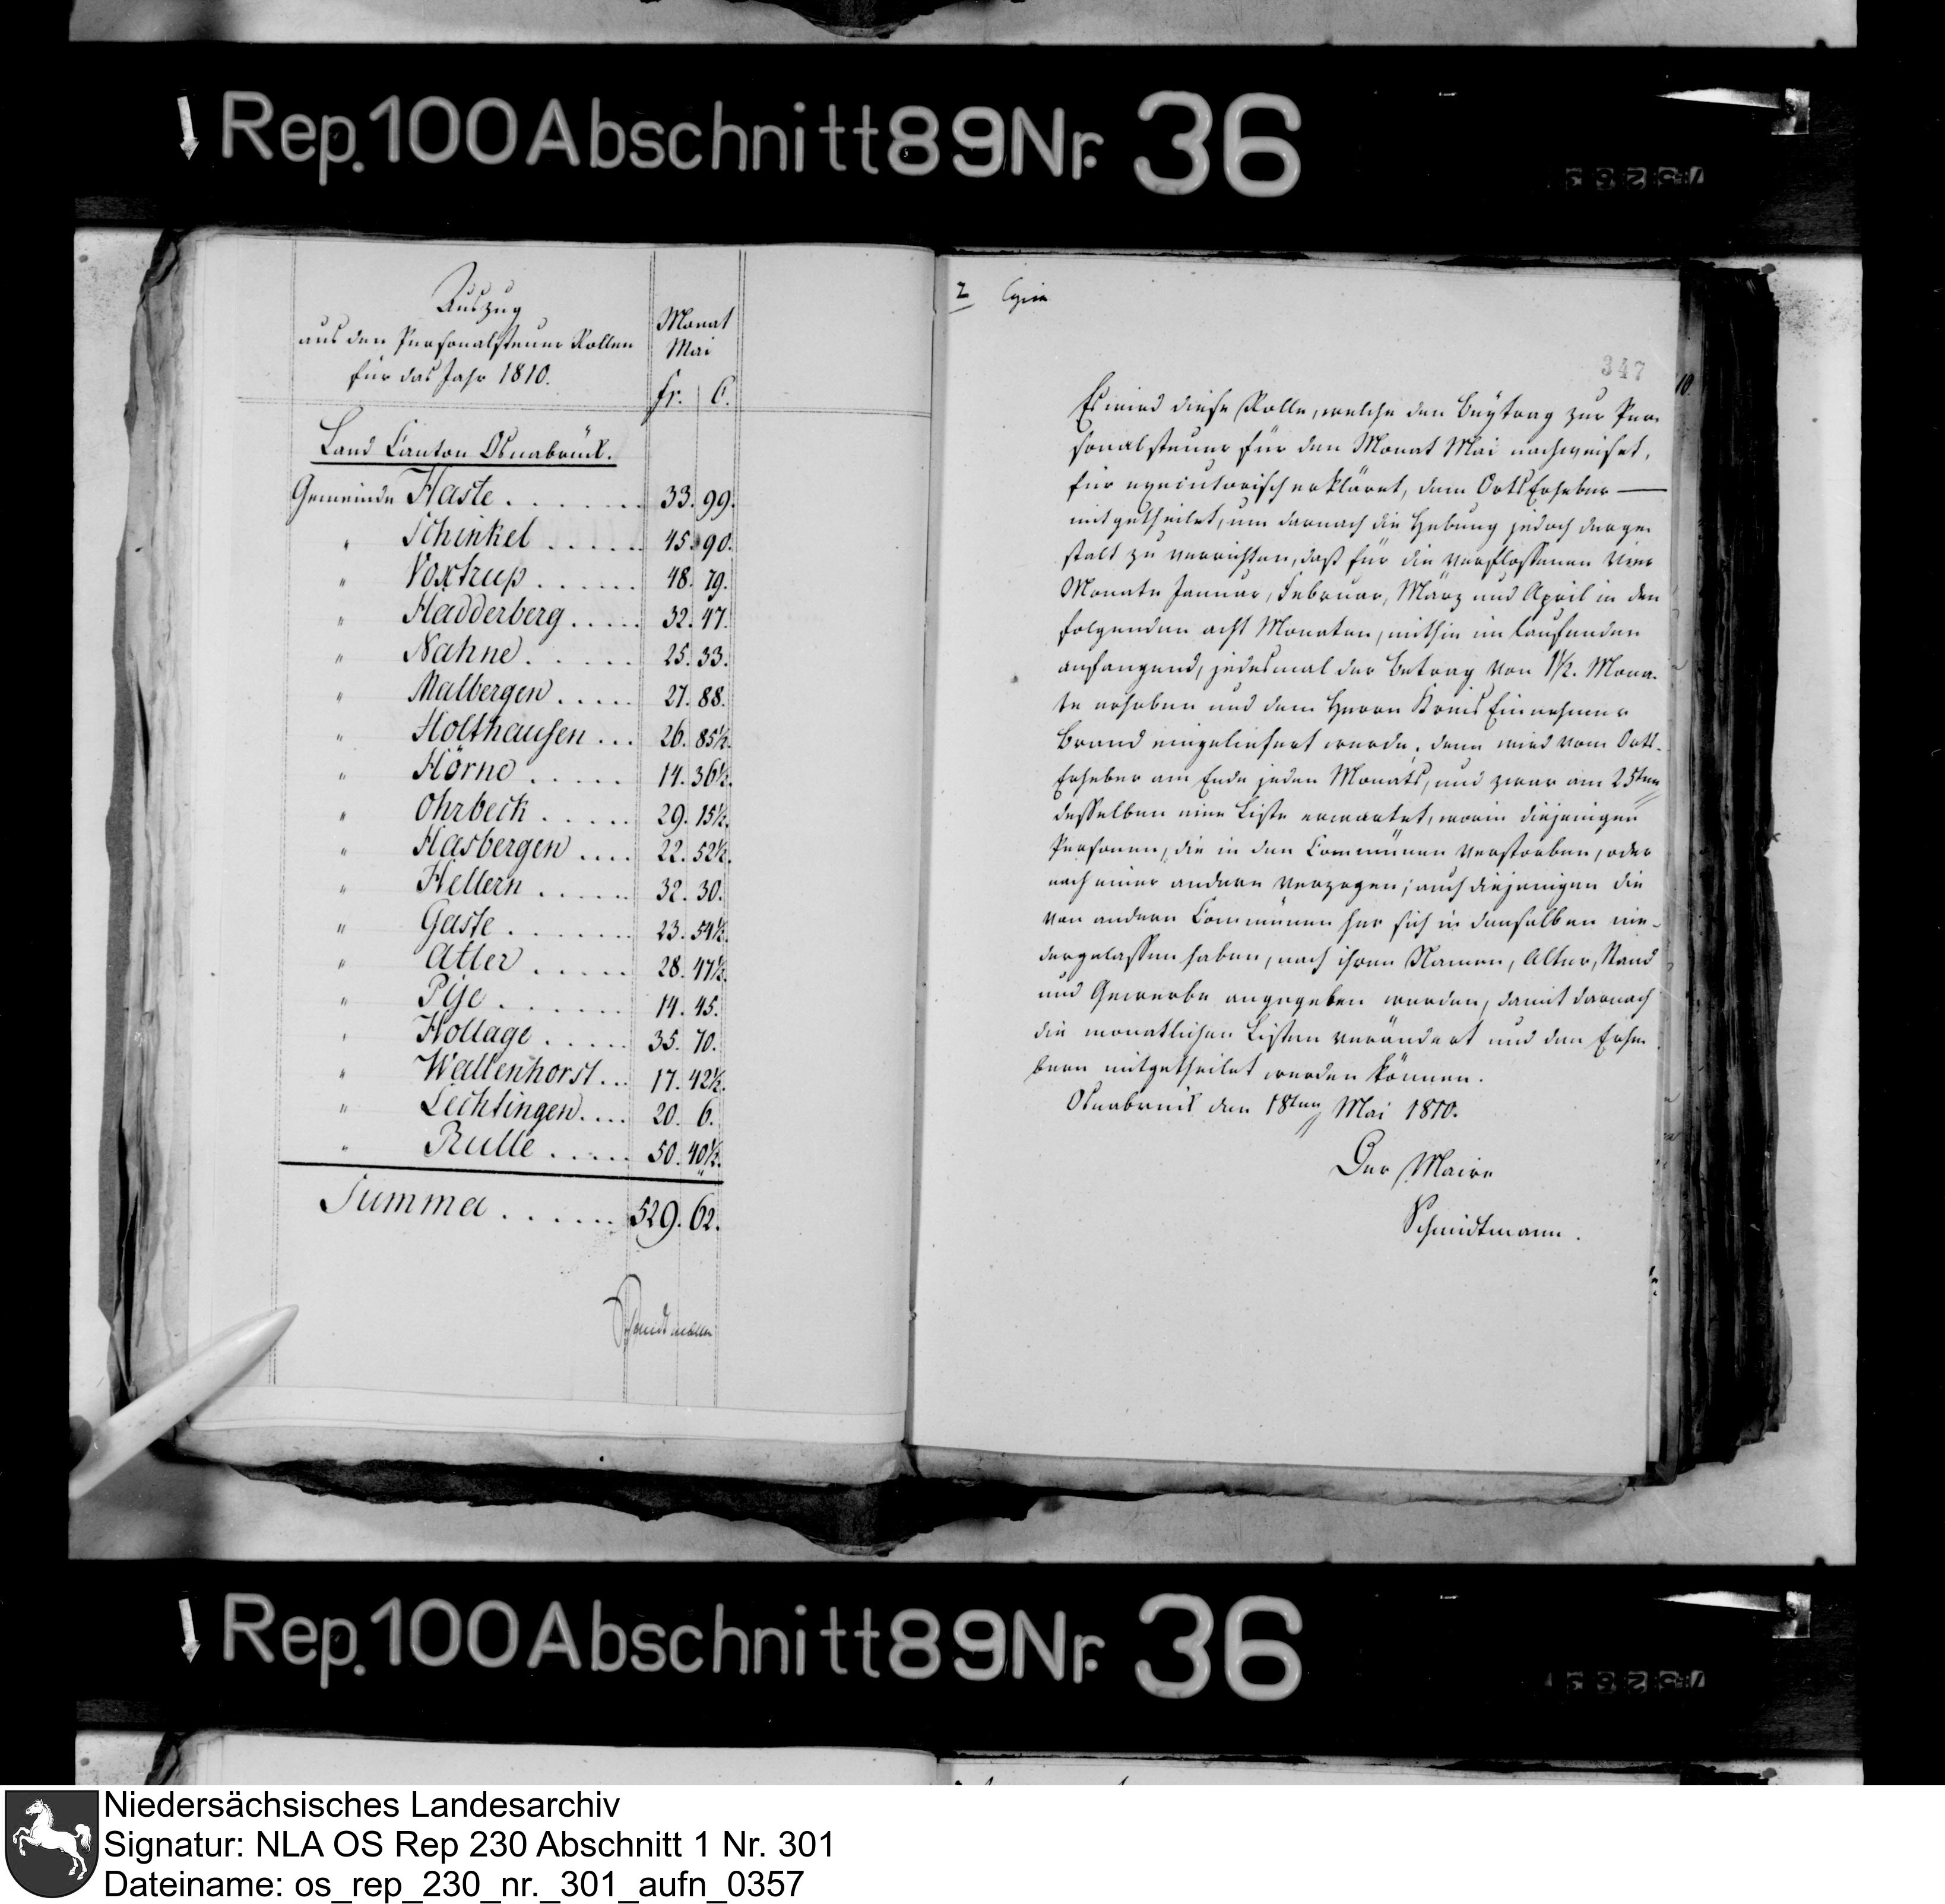 Rep. 100 Abschnitt 89 Nr. 36
Auszug
aus den Personalsteuer Rollen
für das Jahr 1810.
Monat
Mai
fr. C.
Land Canton Osnabrück.
Gemeinde Haste . . . . . . . 33. 99.
" Schinkel . . . . . 45. 90.
" Voxtrup . . . . . . 48. 79.
" Hadderberg . . . . . 32. 47.
" Nahne . . . . . . 25. 33.
" Malbergen . . . . . 27. 88.
" Holthausen . . . 26. 85½.
" Hörne . . . . . 14. 36½.
" Ohrbeck . . . . . 29. 15½.
" Hasbergen . . . . 22. 52½.
" Hellern . . . . . 32. 30.
" Gaste . . . . . . . 23. 54½.
" Atter . . . . . 28. 47½.
" Pije . . . . . . . 14. 45.
" Hollage . . . . . 35. 70.
" Wallenhorst . . . 17. 42½.
" Lechtingen . . . . 20. 6.
" Rulle . . . . . 50. 40½.
Summa . . . . . . 529. 62.
Schmidtmann
2 Copia
347
10.
Es wird diese Rolle, welche den Beytrag zur Per-
sonalsteuer für den Monat Mai nachweiset,
für executorisch erkläret, dem Orts Erheber —
mitgetheilet, um darnach die Hebung jedoch derge-
stalt zu verrichten, daß für die verflossenen vier
Monate Januar, Februar, März und April in den
folgenden acht Monaten, mithin im laufenden
anfangend, jedesmal der Betrag von 1½. Mona-
te erhoben und dem Herrn Kreis Einnehmer
Brand eingeliefert werde; denn wird vom Orts-
Erheber am Ende jeden Monats, und zwar am 25ten
desselben eine Liste erwartet, worin diejenigen
Personen, die in den Communen verstorben, oder
nach einer andern verzogen; auch diejenigen die
von andern Communen her sich in denselben nie-
dergelassen haben, nach ihren Namen, Alter, Stand
und Gewerbe angegeben werden, damit darnach
die monatlichen Listen verändert und den Erhe-
bern mitgetheilet werden können.
Osnabrück den 18ten Mai 1810.
Der Maire
Schmidtmann.
Rep. 100 Abschnitt 89 Nr. 36
Niedersächsisches Landesarchiv
Signatur: NLA OS Rep 230 Abschnitt 1 Nr. 301
Dateiname: os_rep_230_nr._301_aufn_0357